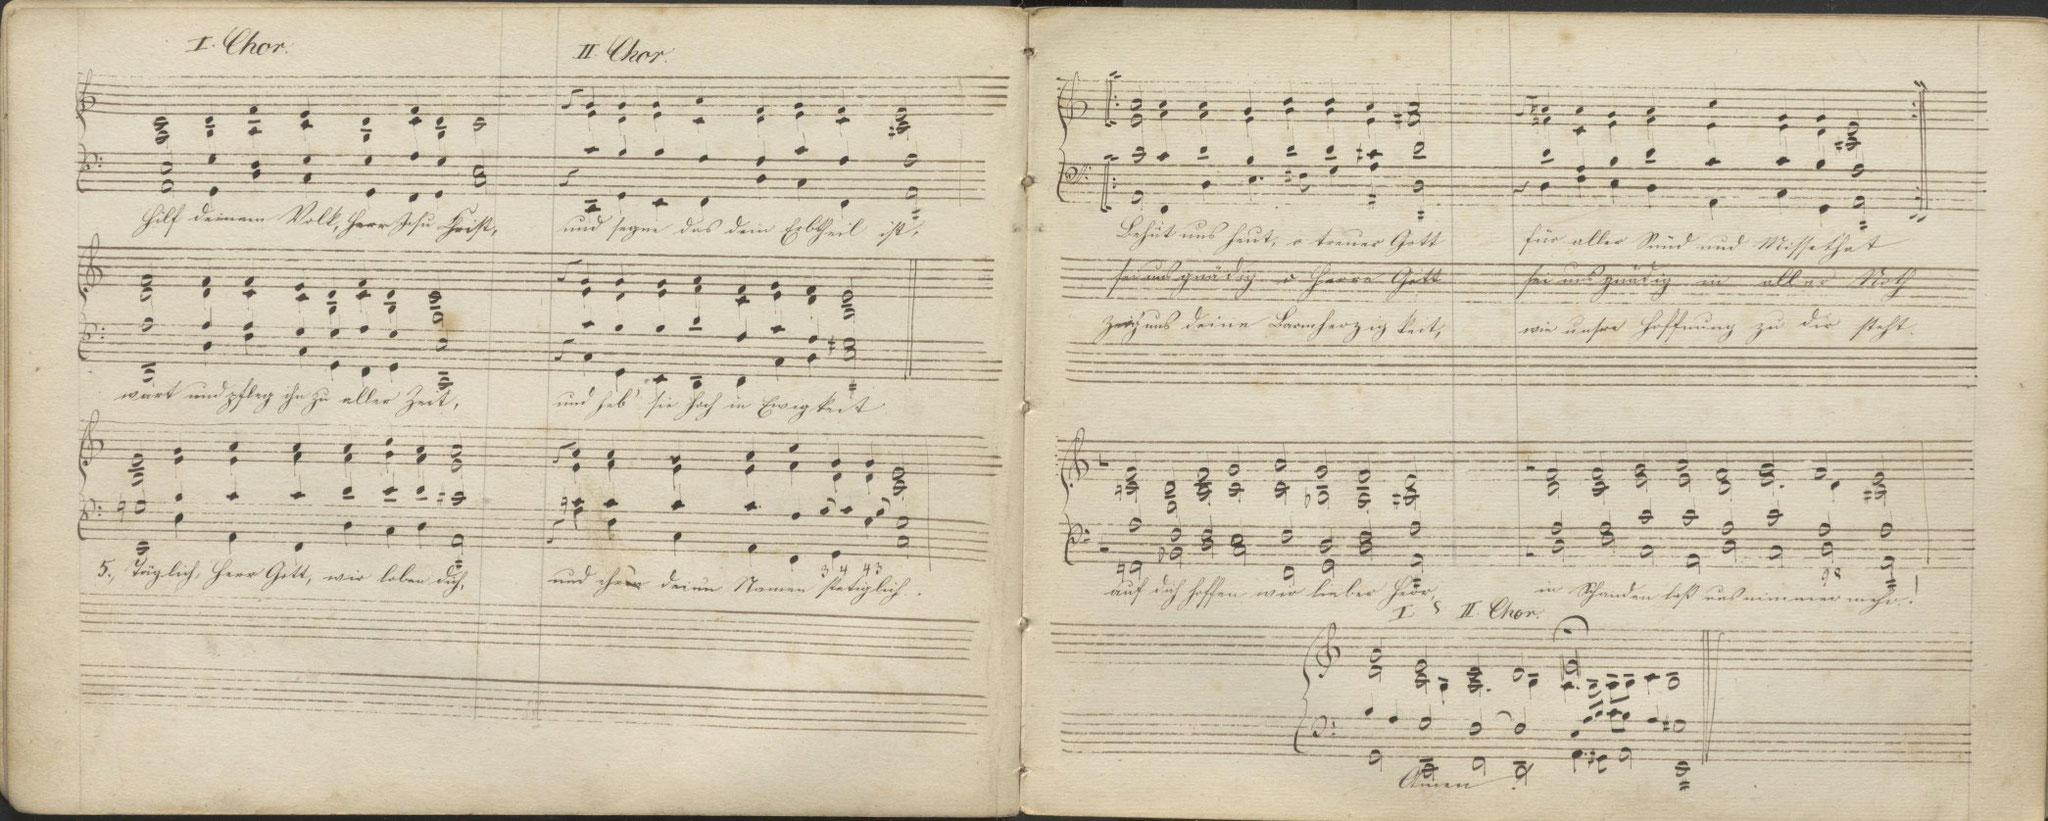 I. Chor. II. Chor.
Hilf deinem Volk, Herr Jesu Christ, und segne das dein Erbtheil ist,
wart und pfleg ihr zu aller Zeit, und heb' sie hoch in Ewigkeit
3 4 4 3
5., Täglich, Herr Gott, wir loben dich, und ehren deinen Namen stetiglich.
Behüt uns heut, o treuer Gott für aller Sünd und Missethat
sei uns gnädig o Herre Gott sei uns gnädig in aller Noth
zeig uns deine Barmherzigkeit, wie unsre Hoffnung zu dir steht.
9 8
auf dich hoffen wir lieber Herr, in Schanden laß uns nimmermehr.
I. & II. Chor.
Amen.